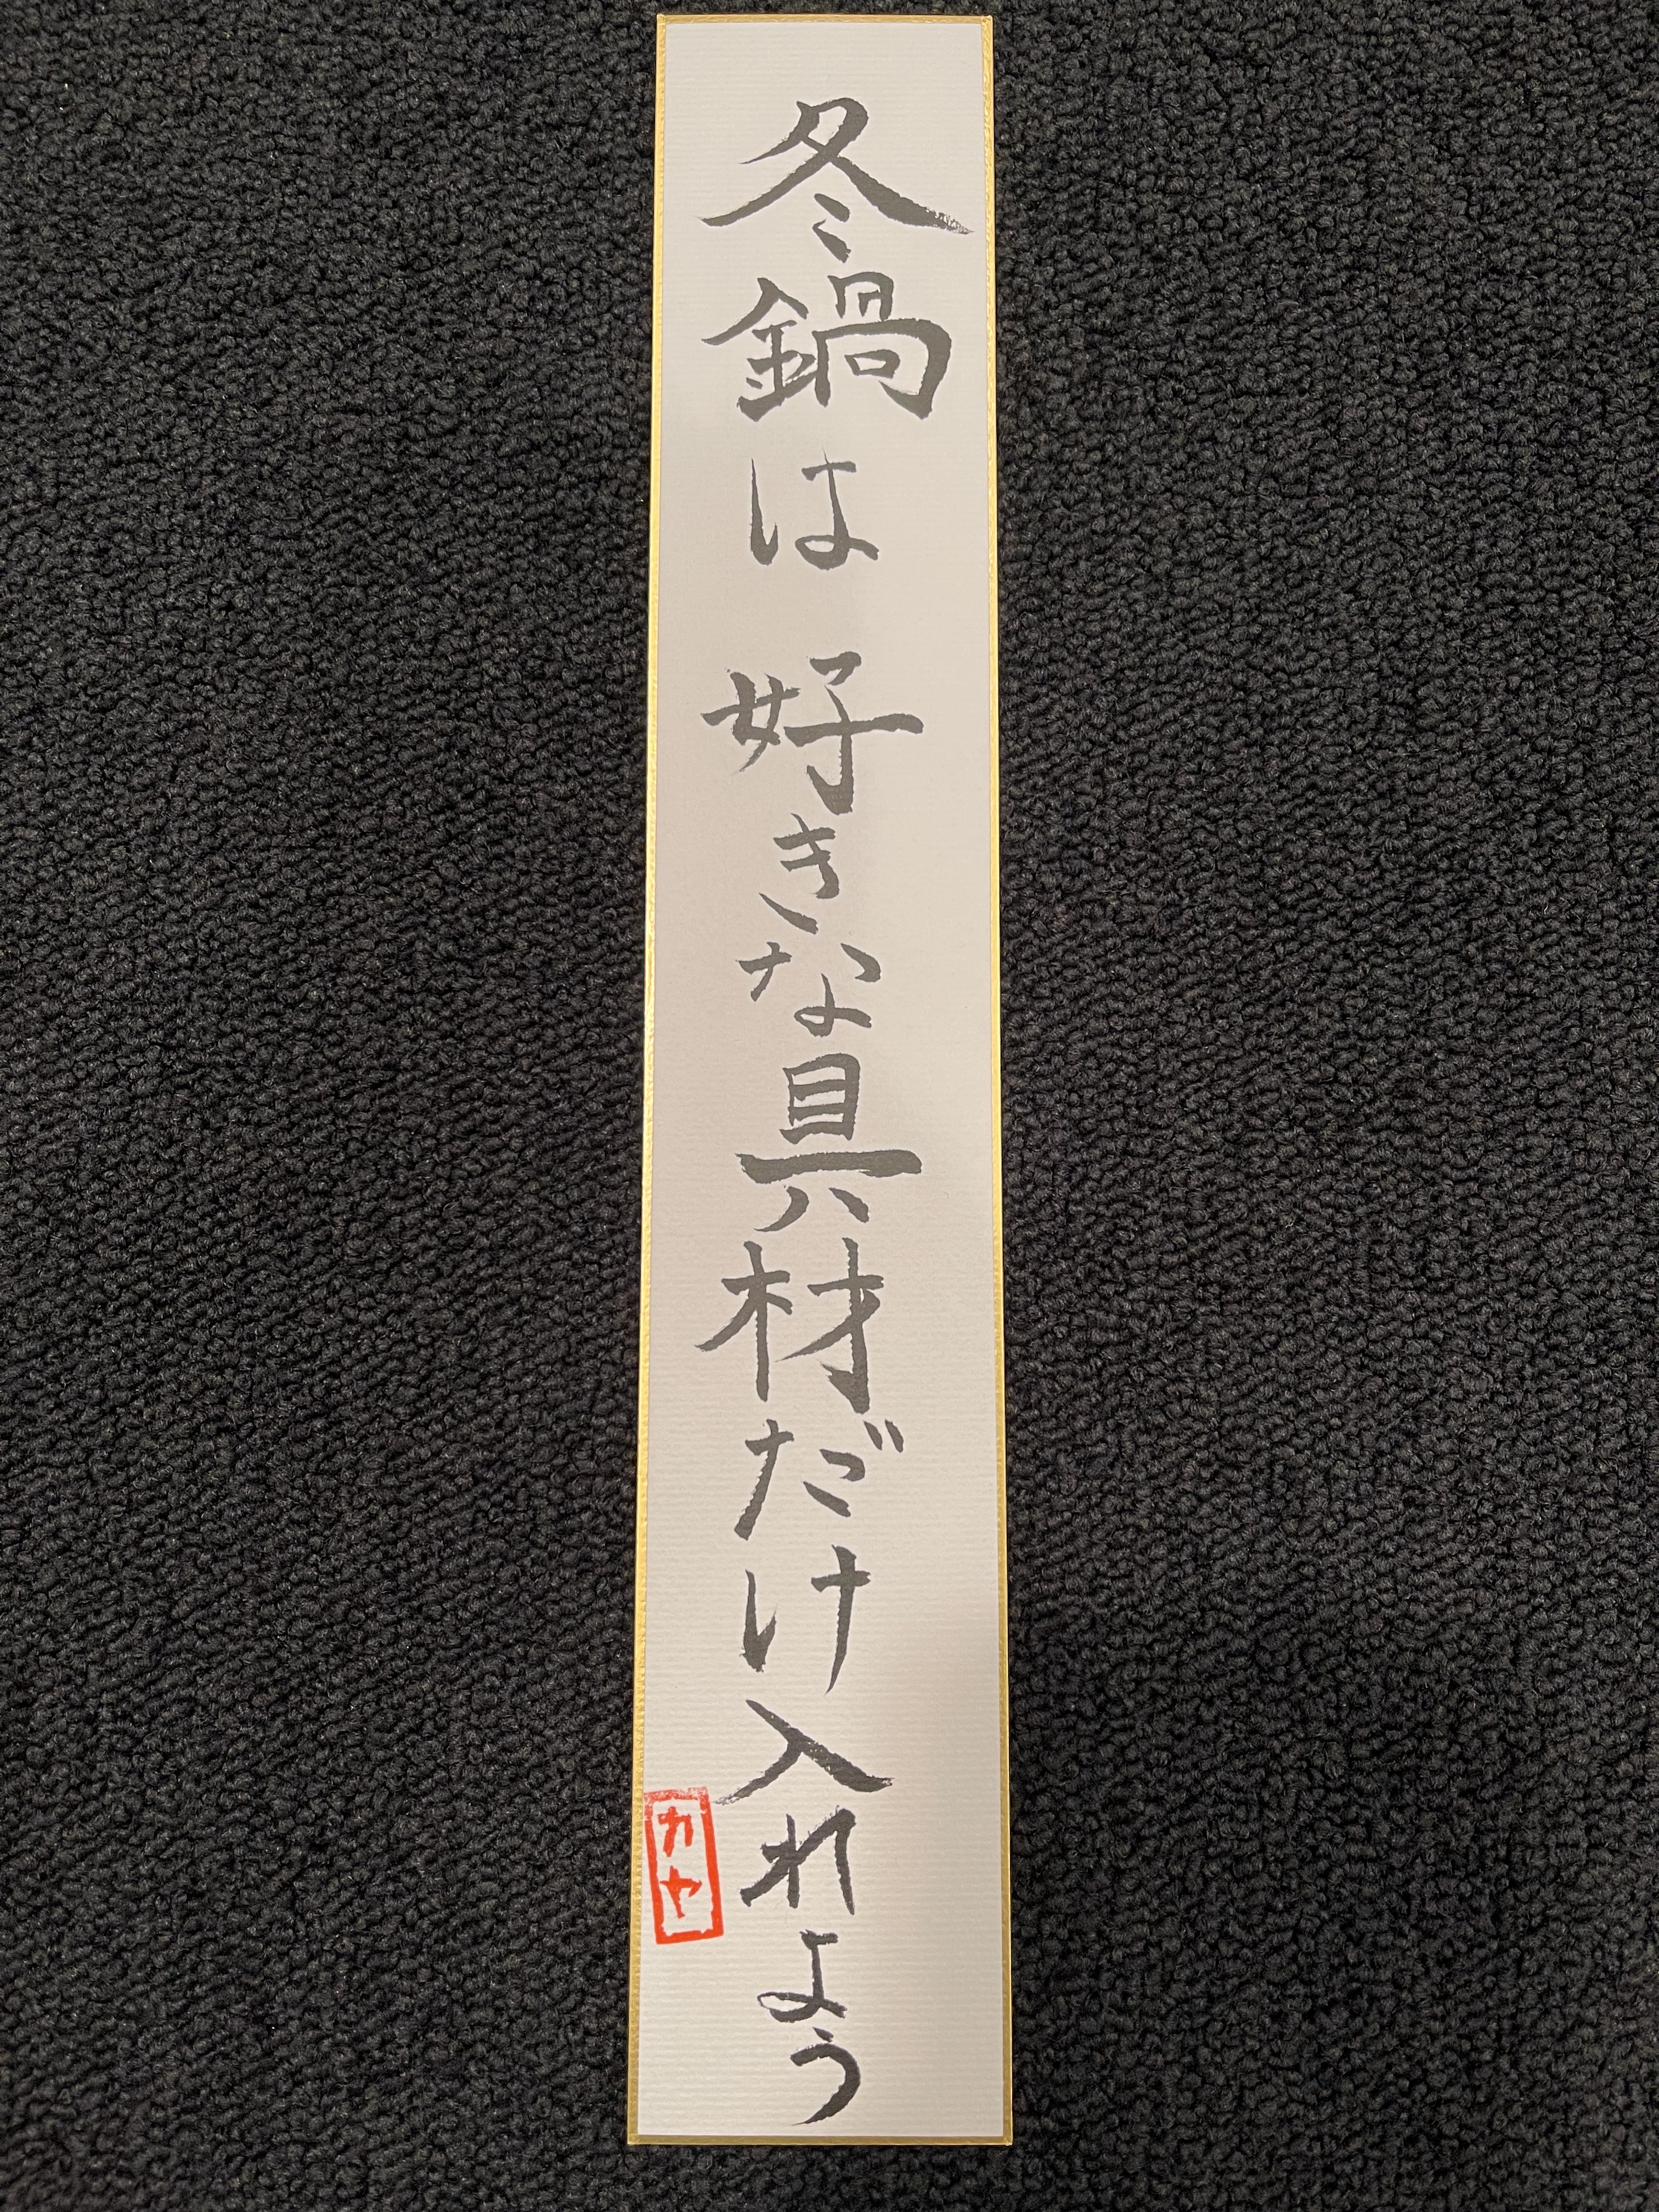 冬鍋は 好きな具材だけ入れよう
カヤ